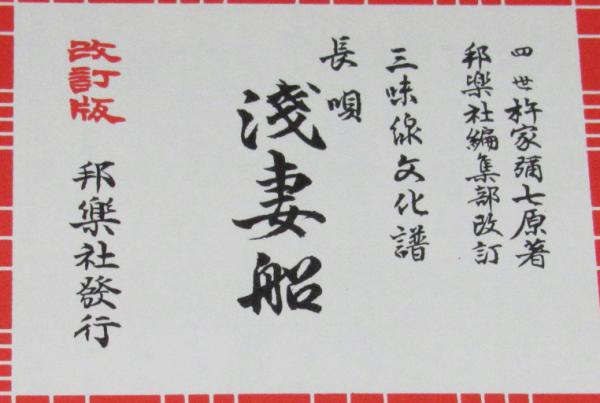 四世杵家彌七原著
邦樂社編集部改訂
三味線文化譜
長唄
淺妻船
改訂版
邦樂社發行